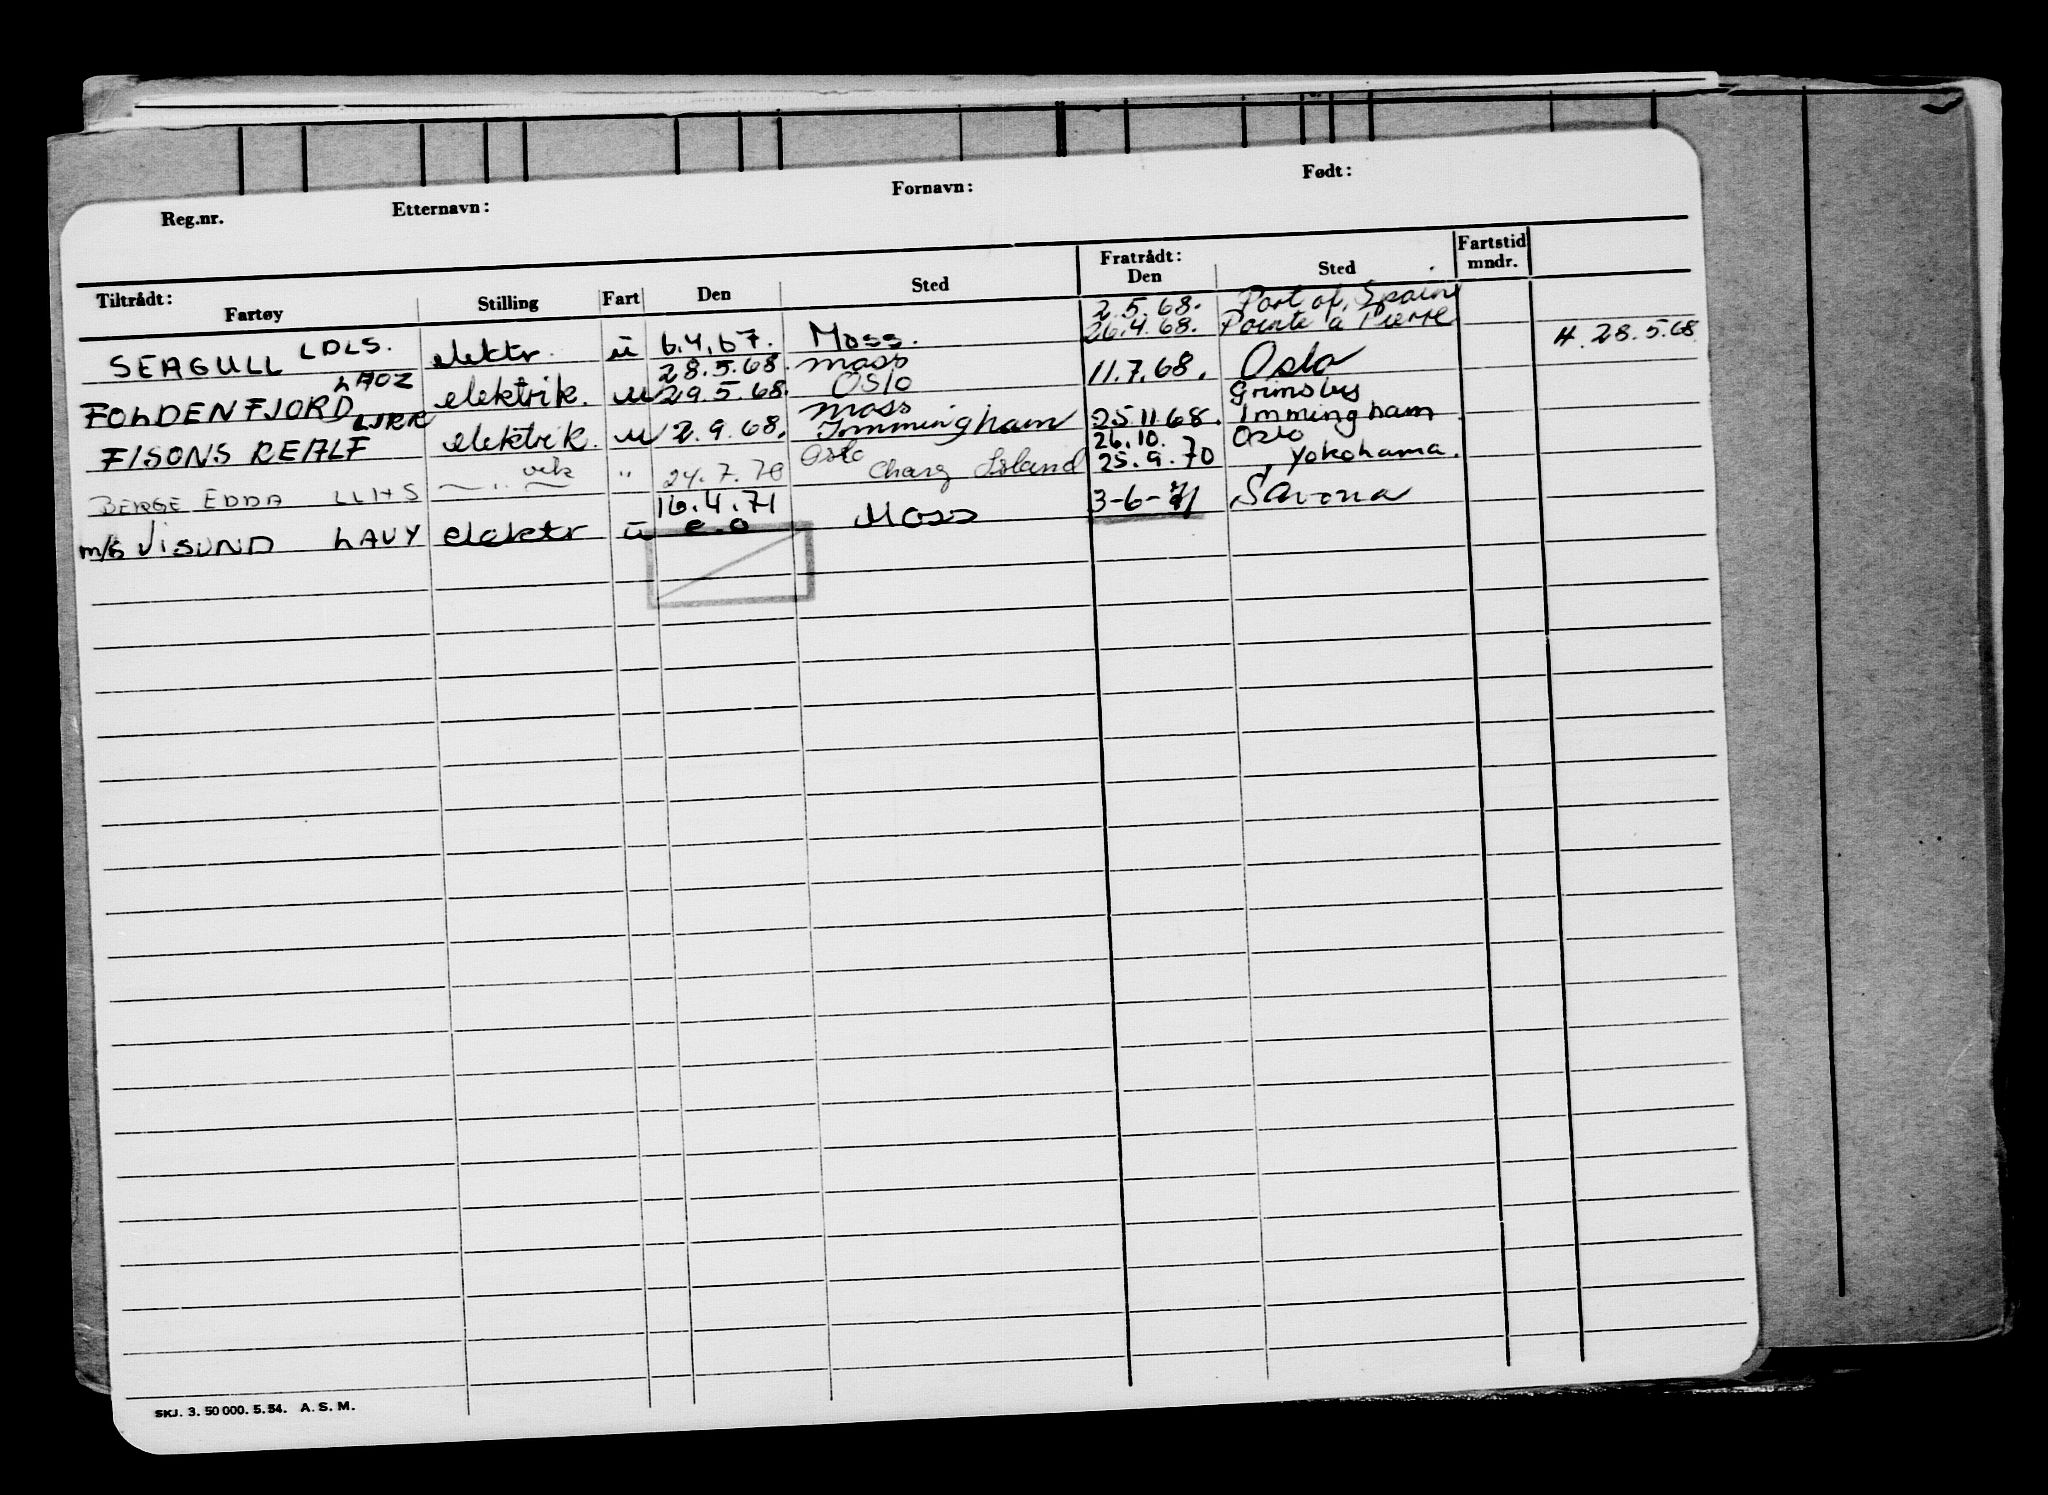 Reg.nr. Etternavn: Fornavn: Født:
Tiltrådt: Fratrådt: Fartstid mndr.
Fartøy Stilling Fart Den Sted Den Sted
2.5.68. Port of Spain
SEAGULL LDLS. elektr. u 6.4.67. Moss. 26.4.68. Pointe a Pierre H. 28.5.68
28.5.68. Moss
FOLDENFJORD LAOZ elektrik. u 29.5.68. Oslo 11.7.68. Oslo
Moss Grimsby
FISONS REALF elektrik. u 2.9.68. Immingham 25.11.68. Immingham
Oslo 26.10. Oslo
BERGE EDDA LLHS — " — vik " 24.7.70 Charg Island 25.9.70 Yokohama.
16.4.71
m/s VISUND LAVY elektr u e.o Moss 3-6-71 Savona
SKJ. 3. 50 000. 5. 54. A. S. M.